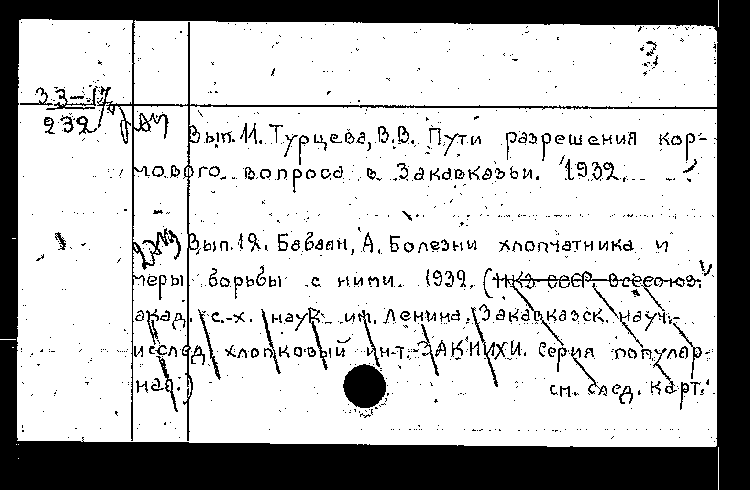 3
33-17
232
Вып. 11. Турцева, В.В. Пути разрешения кор-
мового вопроса в Закавказьи. 1932.
Вып. 12. Бабаян, А. Болезни хлопчатника и
меры борьбы с ними. 1932. (НКЗ СССР. Всесоюз.
акад. с.-х. наук им. Ленина. Закавказск. науч.-
исслед. хлопковый ин-т.-ЗАКНИХИ. Серия популяр-
ная.)
см. след. карт.